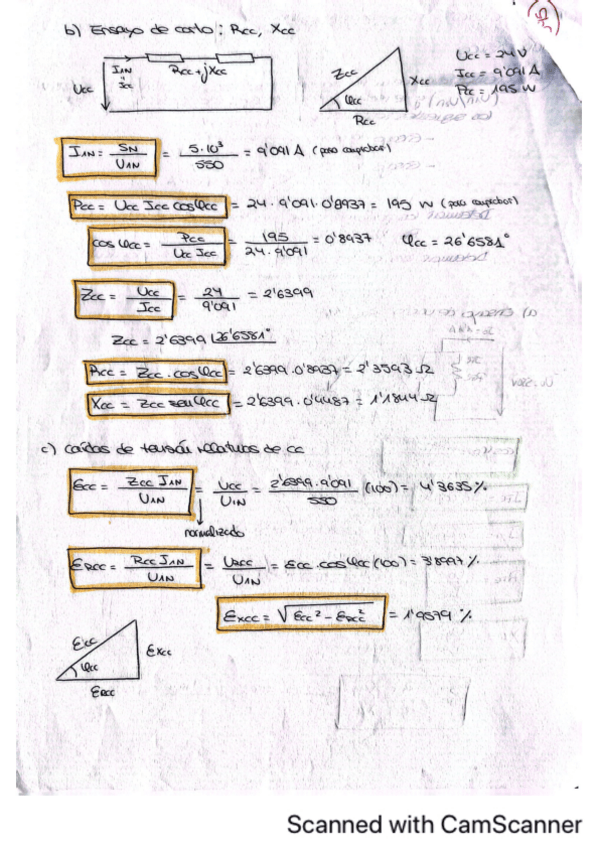 b) Ensayo de corto: Rcc, Xcc
Ucc
I1N
Icc
Rcc+jXcc
Zcc
Xcc
φcc
Rcc
Ucc = 24 V
Icc = 9'091 A
Pcc = 195 W
I1N = SN / U1N = 5·10³ / 550 = 9'091 A (para comprobar)
Pcc = Ucc Icc cosφcc = 24 · 9'091 · 0'8937 = 195 W (para comprobar)
cos φcc = Pcc / Ucc Icc = 195 / 24·9'091 = 0'8937 φcc = 26'6581°
Zcc = Ucc / Icc = 24 / 9'091 = 2'6399
Zcc = 2'6399 |26'6581°
Rcc = Zcc · cosφcc = 2'6399 · 0'8937 = 2'3593 Ω
Xcc = Zcc senφcc = 2'6399 · 0'4487 = 1'1844 Ω
c) Caídas de tensión relativas de cc
Ecc = Zcc I1N / U1N = Ucc / U1N = 2'6399·9'091 / 550 (100) = 4'3635 %
normalizado
ERcc = Rcc I1N / U1N = URcc / U1N = Ecc · cosφcc (100) = 3'8997 %
EXcc = √Ecc² − ERcc² = 1'9579 %
Ecc
EXcc
φcc
ERcc
Scanned with CamScanner